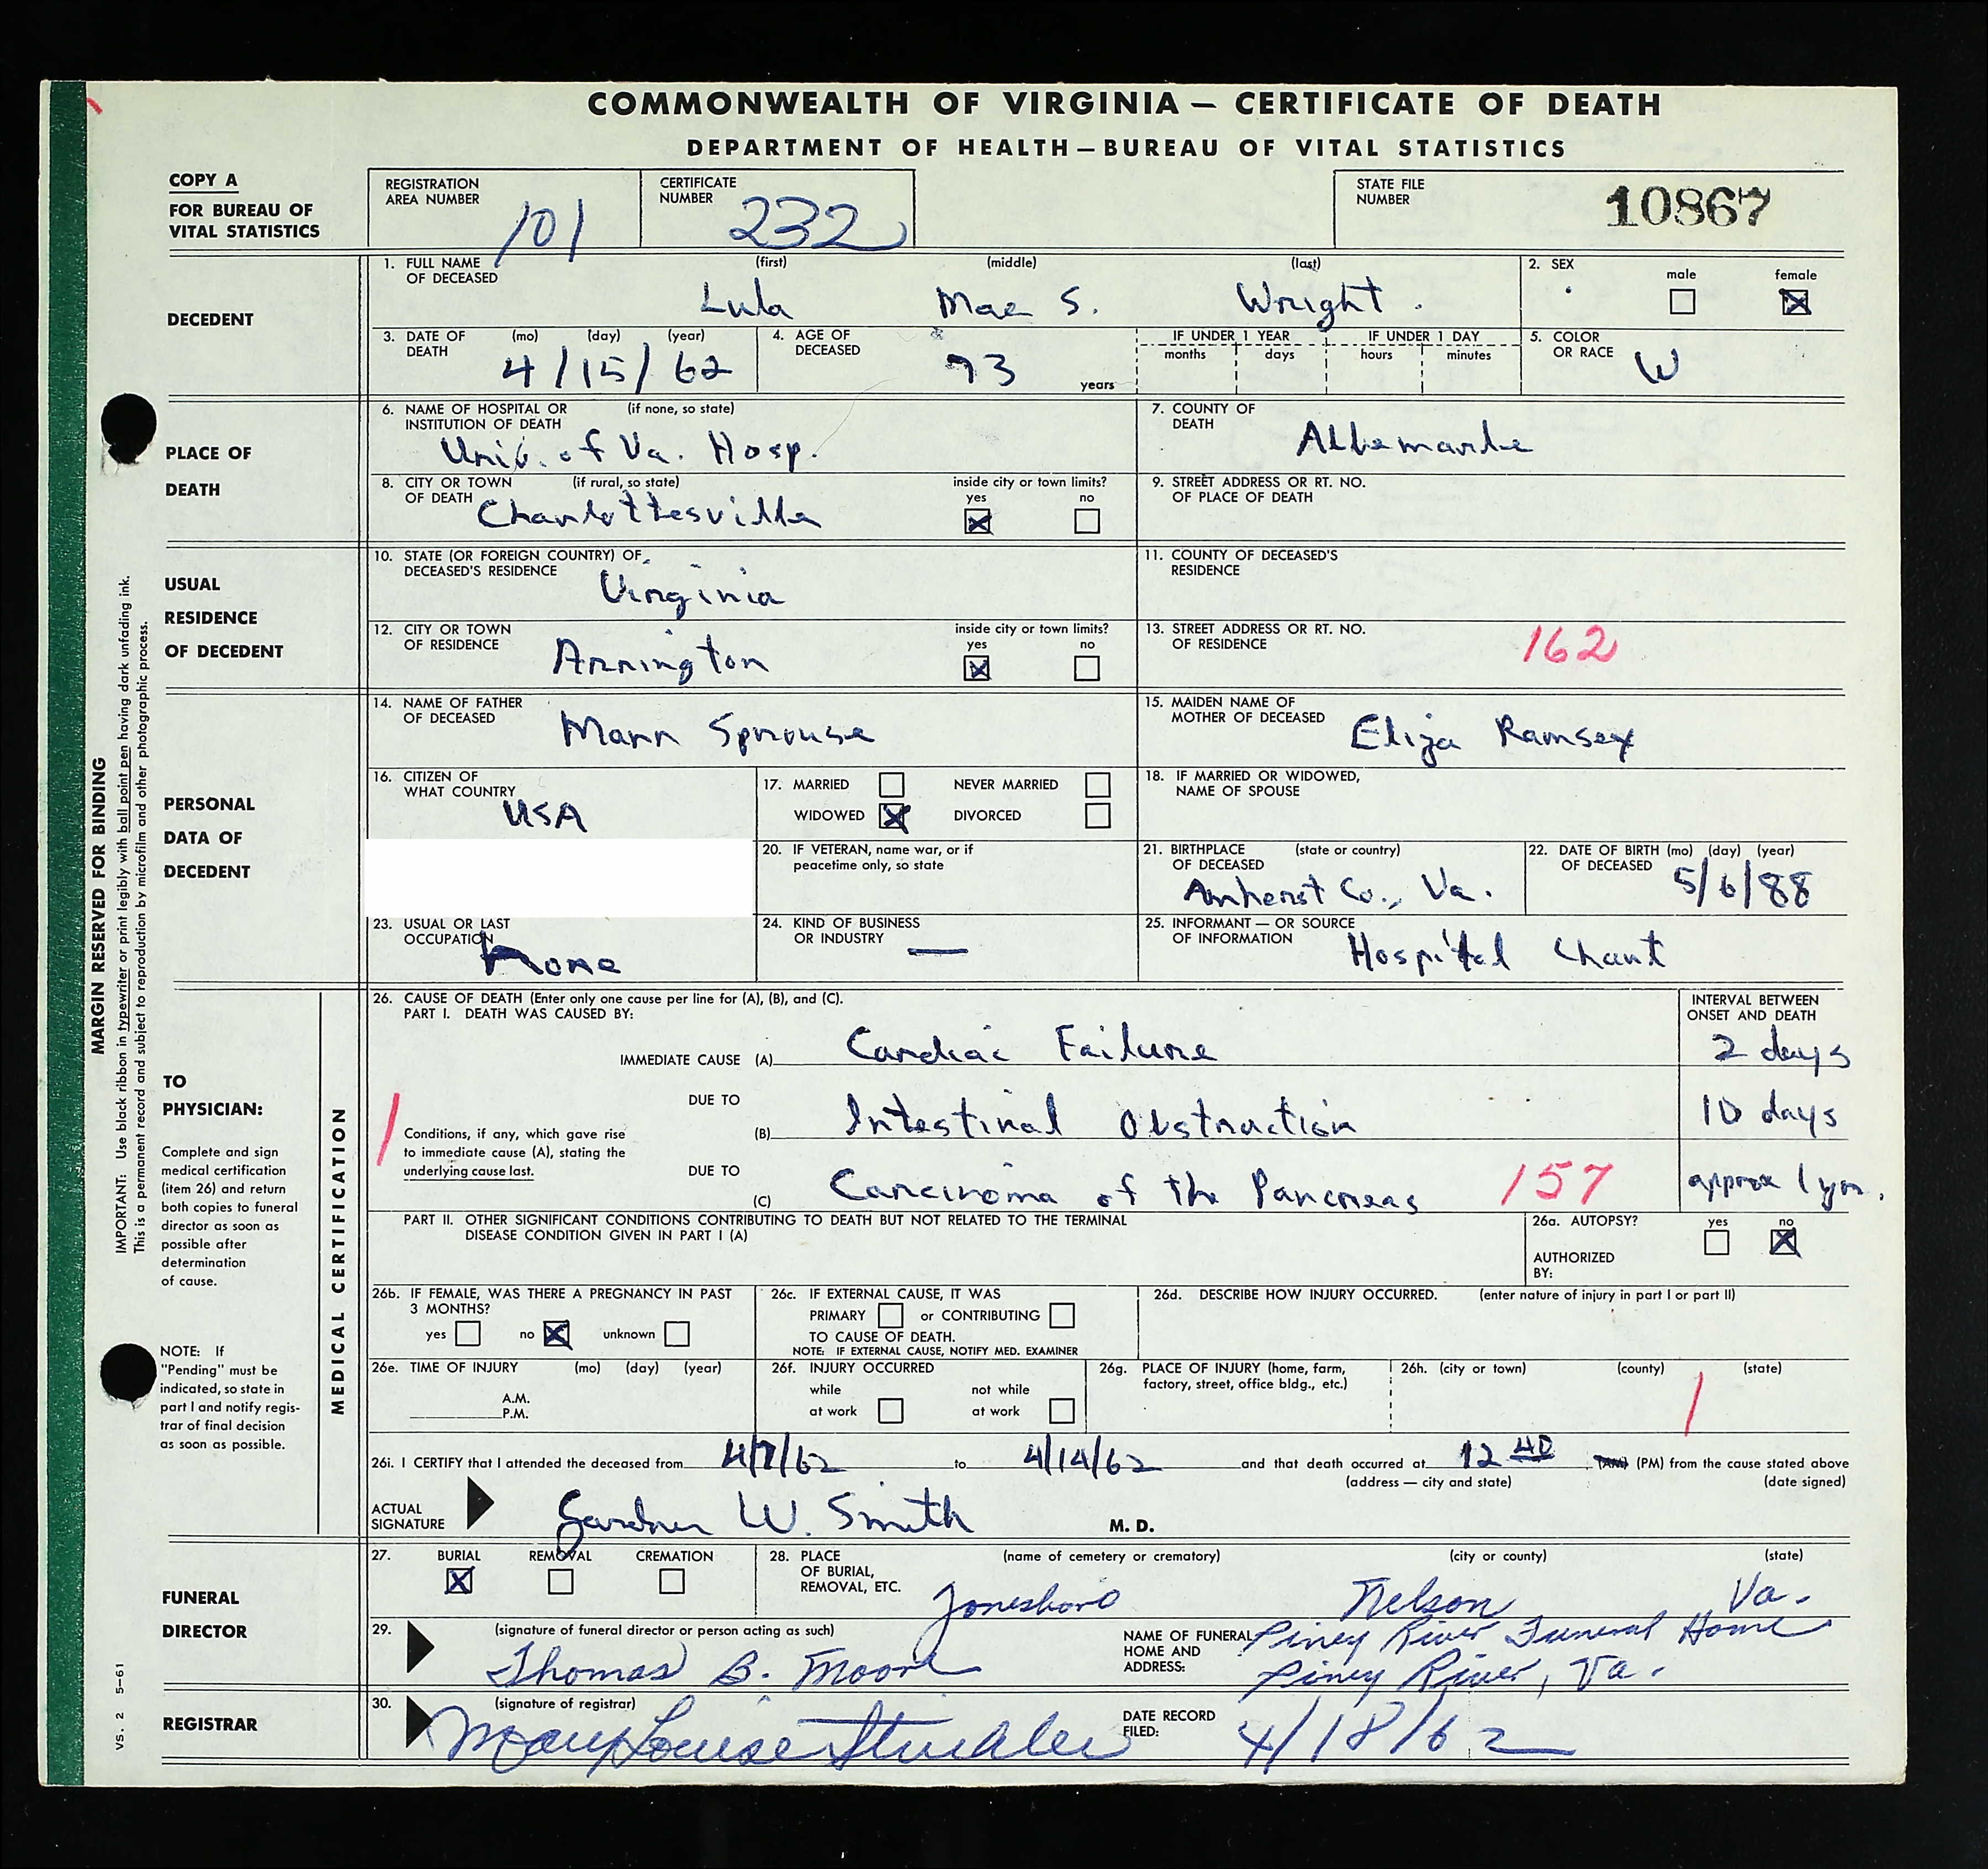 COMMONWEALTH OF VIRGINIA — CERTIFICATE OF DEATH
DEPARTMENT OF HEALTH — BUREAU OF VITAL STATISTICS
COPY A
FOR BUREAU OF
VITAL STATISTICS
REGISTRATION
AREA NUMBER
101
CERTIFICATE
NUMBER
232
STATE FILE
NUMBER
10867
DECEDENT
1. FULL NAME OF DECEASED (first) (middle) (last)
Lula Mae S. Wright
2. SEX male female
3. DATE OF DEATH (mo) (day) (year)
4/15/62
4. AGE OF DECEASED
73 years
IF UNDER 1 YEAR IF UNDER 1 DAY
months days hours minutes
5. COLOR OR RACE
W
PLACE OF
DEATH
6. NAME OF HOSPITAL OR (if none, so state)
INSTITUTION OF DEATH
Univ. of Va. Hosp.
7. COUNTY OF DEATH
Albemarle
8. CITY OR TOWN (if rural, so state)
OF DEATH
Charlottesville
inside city or town limits?
yes no
9. STREET ADDRESS OR RT. NO.
OF PLACE OF DEATH
USUAL
RESIDENCE
OF DECEDENT
10. STATE (OR FOREIGN COUNTRY) OF
DECEASED'S RESIDENCE
Virginia
11. COUNTY OF DECEASED'S
RESIDENCE
12. CITY OR TOWN
OF RESIDENCE
Arrington
inside city or town limits?
yes no
13. STREET ADDRESS OR RT. NO.
OF RESIDENCE
162
PERSONAL
DATA OF
DECEDENT
14. NAME OF FATHER
OF DECEASED
Mann Sprouse
15. MAIDEN NAME OF
MOTHER OF DECEASED
Eliza Ramsey
16. CITIZEN OF
WHAT COUNTRY
USA
17. MARRIED NEVER MARRIED
WIDOWED DIVORCED
18. IF MARRIED OR WIDOWED,
NAME OF SPOUSE
20. IF VETERAN, name war, or if
peacetime only, so state
21. BIRTHPLACE (state or country)
OF DECEASED
Amherst Co., Va.
22. DATE OF BIRTH (mo) (day) (year)
OF DECEASED
5/6/88
23. USUAL OR LAST
OCCUPATION
None
24. KIND OF BUSINESS
OR INDUSTRY
—
25. INFORMANT — OR SOURCE
OF INFORMATION
Hospital Chart
MARGIN RESERVED FOR BINDING
IMPORTANT: Use black ribbon in typewriter or print legibly with ball point pen having dark unfading ink.
This is a permanent record and subject to reproduction by microfilm and other photographic process.
TO
PHYSICIAN:
Complete and sign
medical certification
(item 26) and return
both copies to funeral
director as soon as
possible after
determination
of cause.
NOTE: If
"Pending" must be
indicated, so state in
part I and notify regis-
trar of final decision
as soon as possible.
MEDICAL CERTIFICATION
26. CAUSE OF DEATH (Enter only one cause per line for (A), (B), and (C).
PART I. DEATH WAS CAUSED BY:
INTERVAL BETWEEN
ONSET AND DEATH
IMMEDIATE CAUSE (A) Cardiac Failure 2 days
DUE TO
(B) Intestinal Obstruction 10 days
Conditions, if any, which gave rise
to immediate cause (A), stating the
underlying cause last.
DUE TO
(C) Carcinoma of the Pancreas 157 approx 1 yr.
PART II. OTHER SIGNIFICANT CONDITIONS CONTRIBUTING TO DEATH BUT NOT RELATED TO THE TERMINAL
DISEASE CONDITION GIVEN IN PART I (A)
26a. AUTOPSY? yes no
AUTHORIZED
BY:
26b. IF FEMALE, WAS THERE A PREGNANCY IN PAST
3 MONTHS?
yes no unknown
26c. IF EXTERNAL CAUSE, IT WAS
PRIMARY or CONTRIBUTING
TO CAUSE OF DEATH.
NOTE: IF EXTERNAL CAUSE, NOTIFY MED. EXAMINER
26d. DESCRIBE HOW INJURY OCCURRED. (enter nature of injury in part I or part II)
26e. TIME OF INJURY (mo) (day) (year)
A.M.
P.M.
26f. INJURY OCCURRED
while at work
not while at work
26g. PLACE OF INJURY (home, farm,
factory, street, office bldg., etc.)
26h. (city or town) (county) (state)
26i. I CERTIFY that I attended the deceased from 4/7/62 to 4/14/62 and that death occurred at 12 40 (AM) (PM) from the cause stated above
(address — city and state) (date signed)
ACTUAL
SIGNATURE
Gardner W. Smith M. D.
FUNERAL
DIRECTOR
27. BURIAL REMOVAL CREMATION
28. PLACE
OF BURIAL,
REMOVAL, ETC.
(name of cemetery or crematory) (city or county) (state)
Jonesboro Nelson Va.
29. (signature of funeral director or person acting as such)
Thomas B. Moore
NAME OF FUNERAL
HOME AND
ADDRESS:
Piney River Funeral Home
Piney River, Va.
REGISTRAR
30. (signature of registrar)
Mary Louise
DATE RECORD
FILED:
4/18/62
VS. 2 5-61